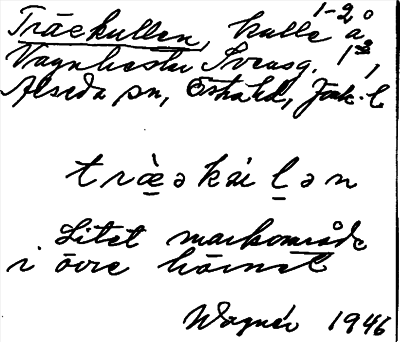 Träekullen, kulle å 1-2
Vagnhester Svensg. 1³,
Alseda sn, Östra hd, Jönk. l
træ̠̀əkúl̠ən
Litet markområde
i övre hörnet
Wagnér 1946